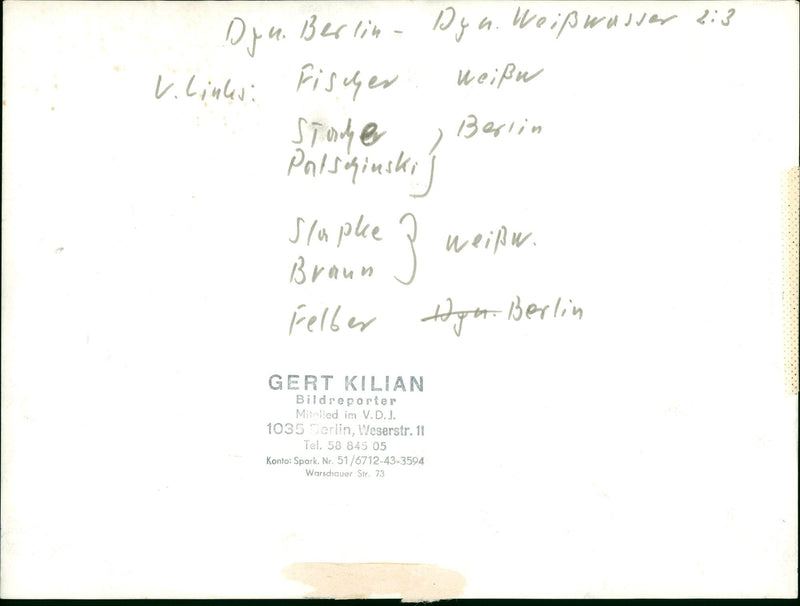 Dyn. Berlin - Dyn. Weißwasser 2:3
V. links: Fischer Weißw
Berlin
Patschinski
Slapke
Braun Weißw.
Felber Dyn. Berlin
GERT KILIAN
Bildreporter
Mitglied im V.D.J.
1035 Berlin, Weserstr. 11
Tel. 58 845 05
Konto: Spark. Nr. 51/6712-43-3594
Warschauer Str. 73